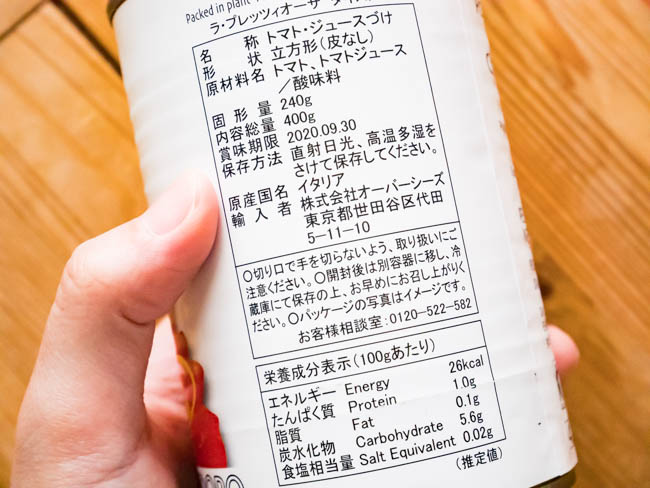 Packed in plant
ラ・プレッツィオーザ
名称 トマト・ジュースづけ
形状 立方形(皮なし)
原材料名 トマト、トマトジュース
/酸味料
固形量 240g
内容総量 400g
賞味期限 2020.09.30
保存方法 直射日光、高温多湿を
さけて保存してください。
原産国名 イタリア
輸入者 株式会社オーバーシーズ
東京都世田谷区代田
5-11-10
○切り口で手を切らないよう、取り扱いにご
注意ください。○開封後は別容器に移し、冷
蔵庫にて保存の上、お早めにお召し上がりく
ださい。○パッケージの写真はイメージです。
お客様相談室:0120-522-582
栄養成分表示(100gあたり)
エネルギー Energy 26kcal
たんぱく質 Protein 1.0g
脂質 Fat 0.1g
炭水化物 Carbohydrate 5.6g
食塩相当量 Salt Equivalent 0.02g
(推定値)